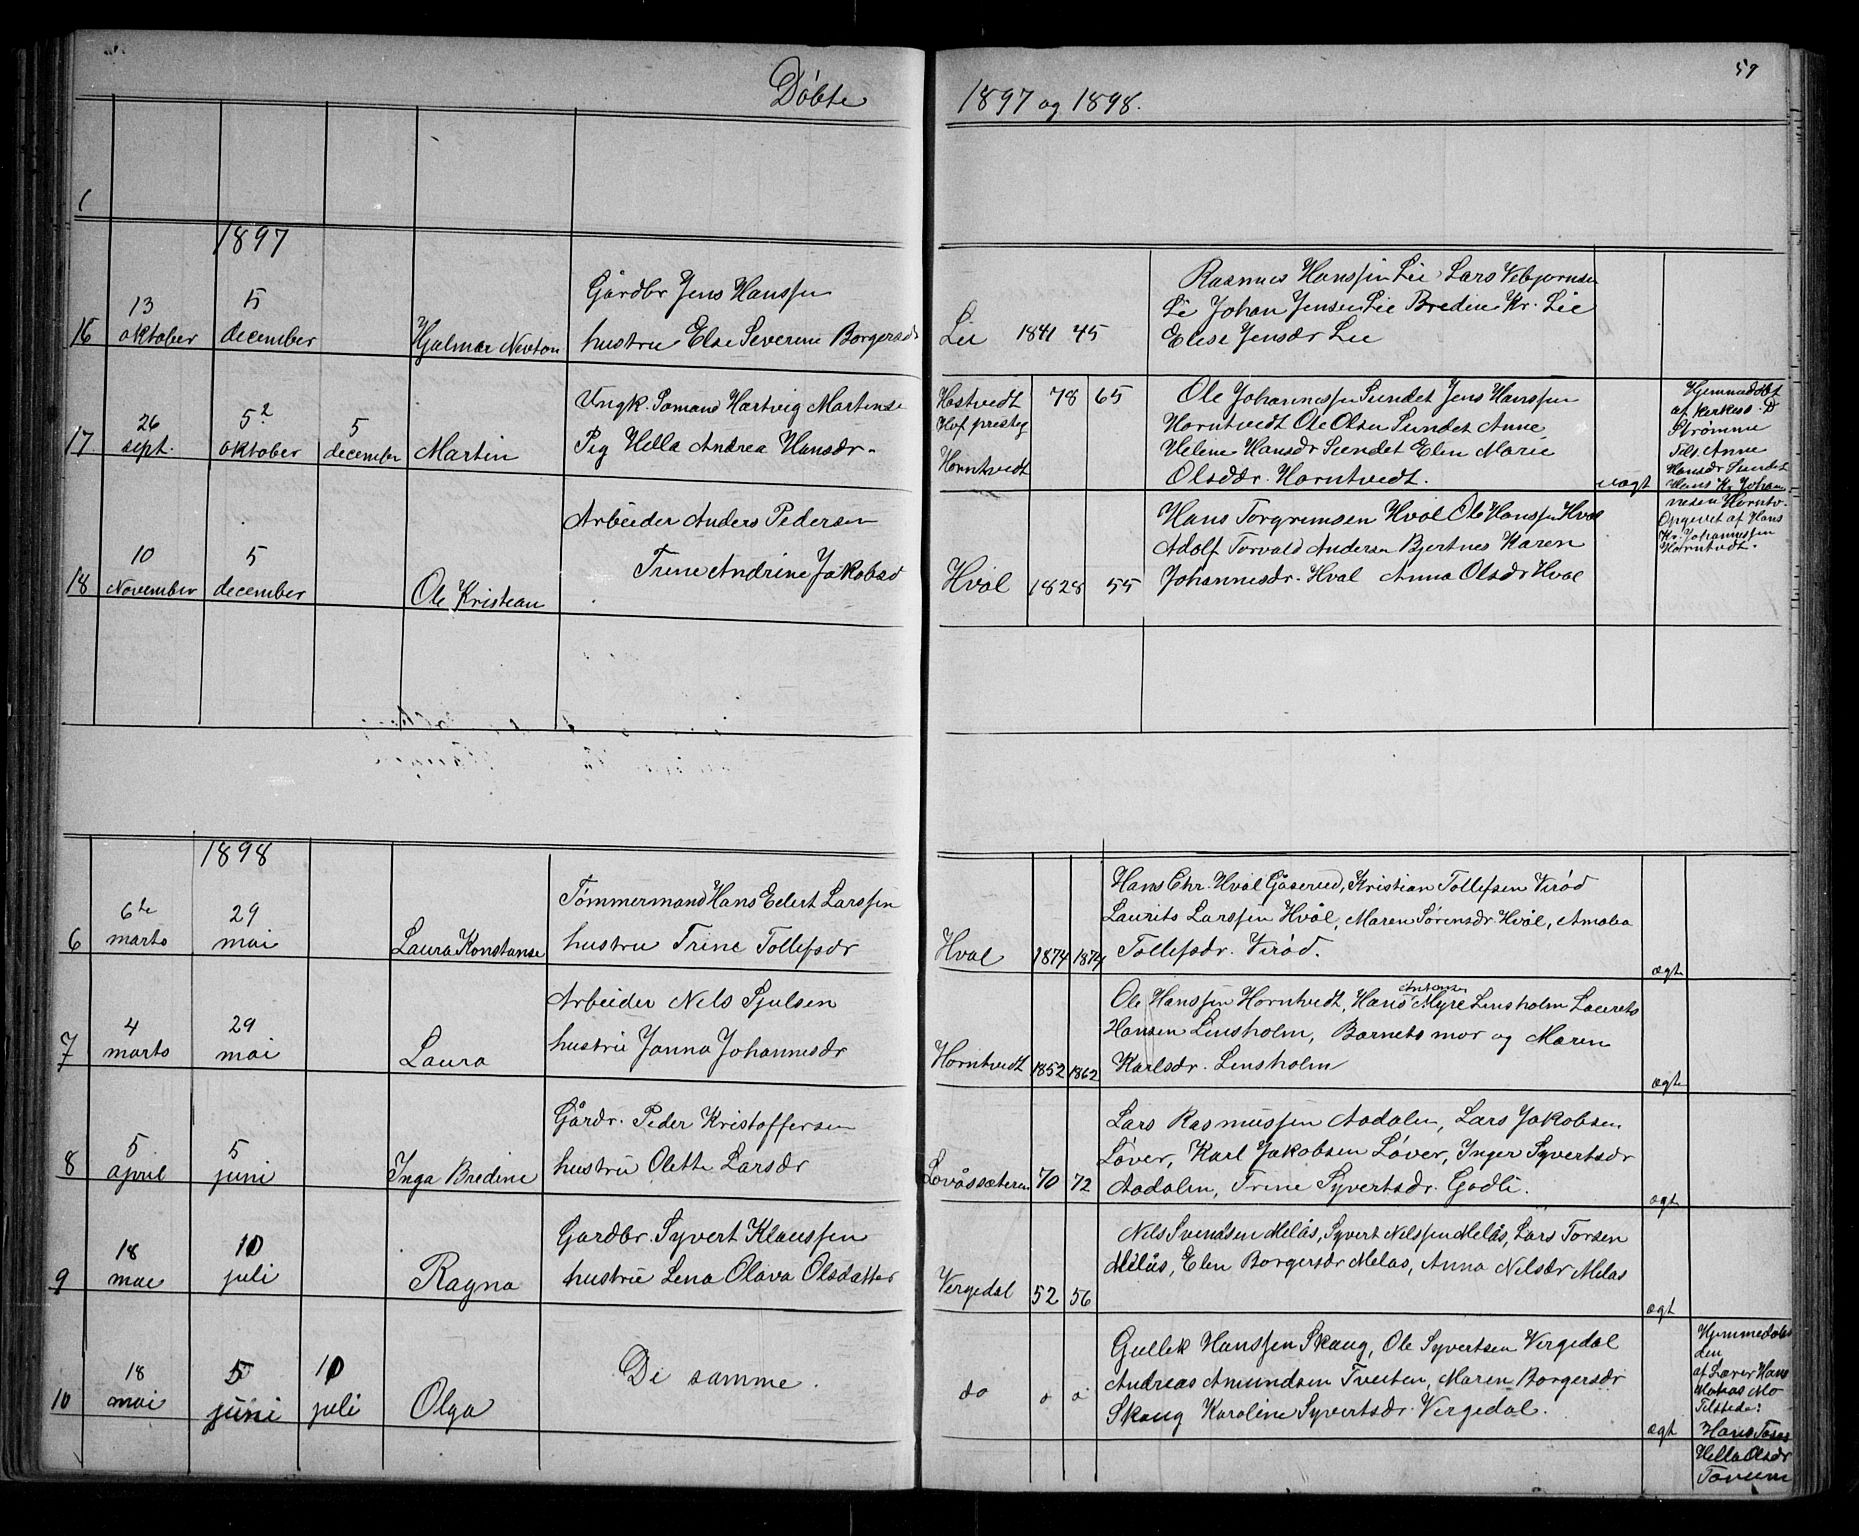 Döbte
1897 og 1898.
59
1897
16
13
oktober
5
december
Hjalmar Newton
Gårdbr Jens Hanssen
hustru Else Severine Borgersdr
Lie
1841
45
Rasmus Hanssen Lie Lars Vebjørnsen
Li Johan Jensen Lie Bredine Kr. Lie
Elise Jensdr Lie
17
26
sept.
5
oktober
5
december
Martin
Ungk. Sömand Hartvig Martinsen
Pig Hella Andrea Hansdr.
Hostvedt
Hof presteg
Horntvedt
78
65
Ole Johannessen Sundet Jens Hanssen
Horntvedt Ole Olsen Sundet Anne
Helene Hansdr Sundet Elen Marie
Olsddr. Horntvedt.
uægt
Hjemmedöbt
af kirkess. D
Strømme
Tils. Anne
Hansdr Sundet
Hans Kr. Johan
nesen Horntv.
Opgivet af Hans
Kr. Johannessen
Horntvedt.
18
10
November
5
december
Ole Kristian
Arbeider Anders Pedersen
Trine Andrine Jakobsd
Hval
1828
55
Hans Torgrimsen Hval Ole Hanssen Hval
Adolf Torvald Andersen Bjertnes Karen
Johannesdr. Hval Anna Olsdr Hval
1898
6
6te
marts
29
mai
Laura Konstanse
Tømmermand Hans Edert Larssen
hustru Trine Tollefsdr
Hval
1874
1874
Hans Chr. Hval Gåserud, Kristian Tollefsen Virød
Laurits Larssen Hvål, Maren Sörensdr. Hvål, Amalia
Tollefsdr. Virød.
ægt
7
4
marts
29
mai
Laura
Arbeider Nils Sjulsen
hustru Janna Johannesdr
Horntvedt
1852
1862
Ole Hanssen Horntvedt, Hans Antonsen Myre Linsholm Laurits
Hansen Linsholm, Barnets mor og Maren
Karlsdr. Linsholm
ægt
8
5
april
5
juni
Inga Bredine
Gårdr. Peder Kristoffersen
hustru Olette Larsdr
Lovåssæteren
70
72
Lars Rasmussen Aadalen, Lars Jakobsen
Løver, Karl Jakobsen Løver, Inger Syvertsdr
Aadalen, Trine Syvertsdr. Godli.
ægt
9
18
mai
10
juli
Ragna
Gardbr. Syvert Klaussen
hustru Lena Olava Olsdatter
Vergedal
52
56
Nils Svendsen Melås, Syvert Nilssen Melås, Lars Torsen
Melås, Elen Borgersdr Melas, Anna Nilsdr Melas
ægt
10
18
mai
5
juni
10
juli
Olga
De samme.
do
Gullek Hanssen Skaug, Ole Syvertsen Vergedal
Andreas Amundsen Tveiten, Maren Borgersdr
Skaug Karoline Syvertsdr. Vergedal.
ægt
Hjemmedøbt
den
af Lærer Hans
Matias Mo
Tilstede:
Hans
Hella Olsdr